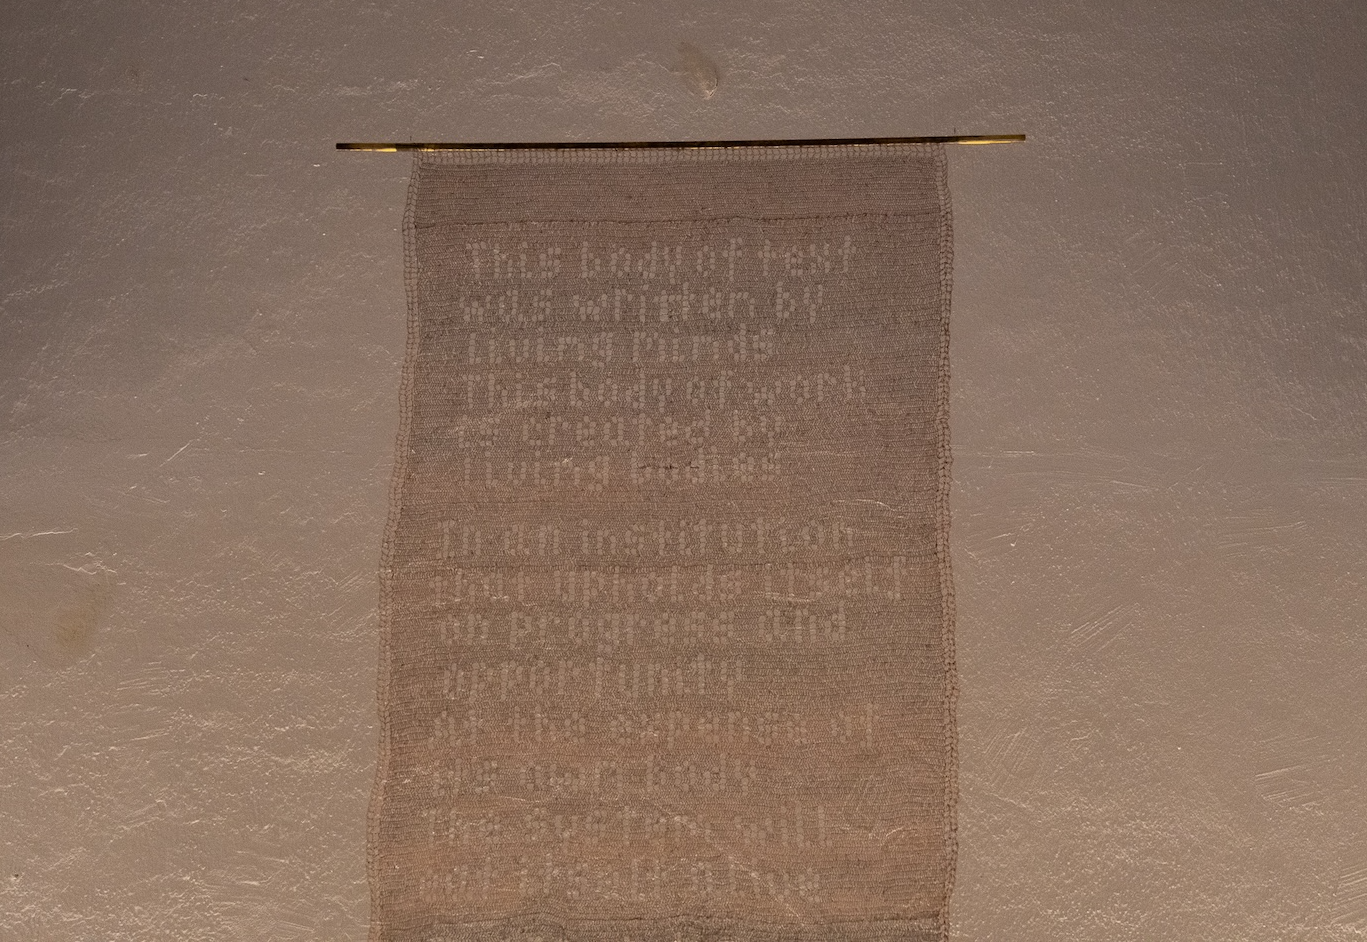 This body of text
was written by
living minds
This body of work
is created by
living bodies
In an institution
that upholds itself
on progress and
opportunity
at the expense of
its own body
The system will
not